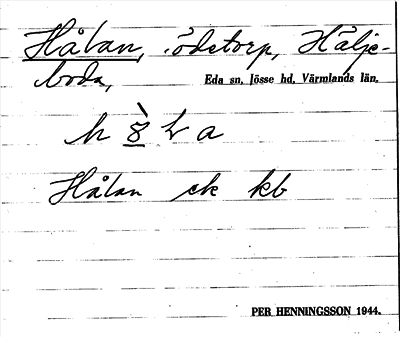 Hålan, ödetorp, Hälje-
boda, Eda sn, Jösse hd, Värmlands län.
Hålan ek kb
PER HENNINGSSON 1944.